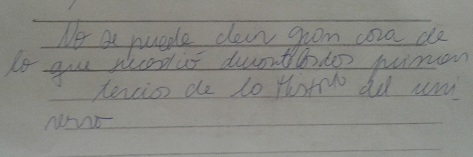 No se puede decir gran cosa de
lo que sucedió durante los dos primeros
tercios de la Historia del uni-
verso